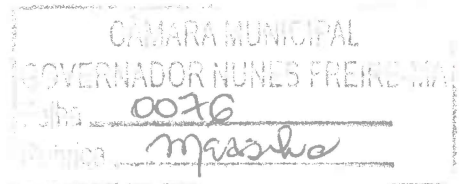 CÂMARA MUNICIPAL
GOVERNADOR NUNES FREIRE-MA
Folha 0076
Rubrica